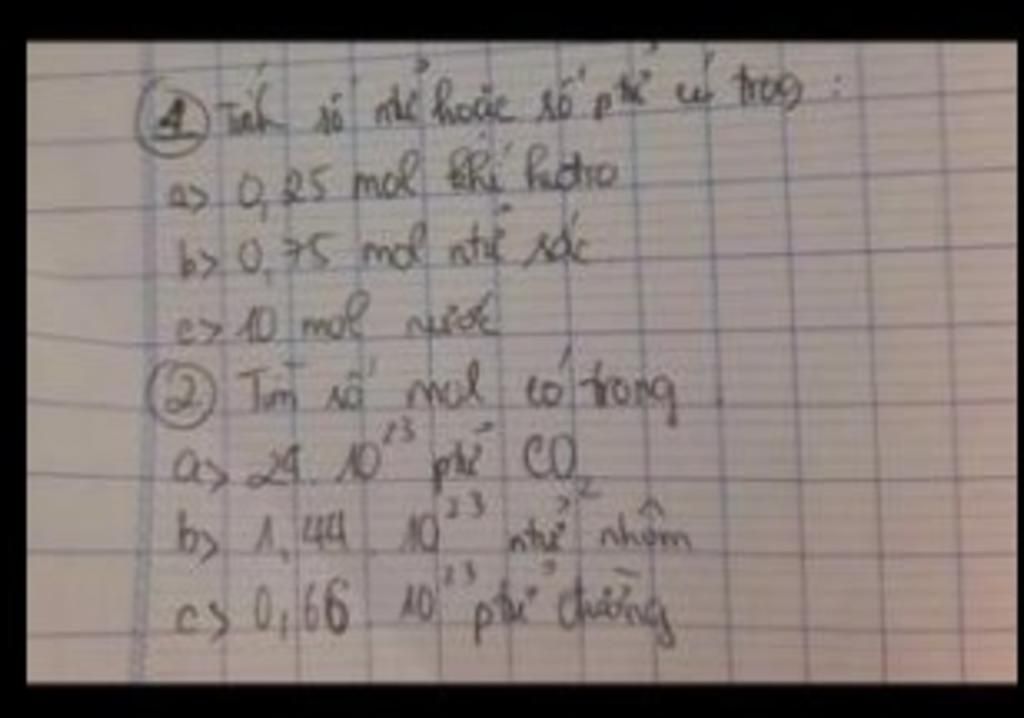 ① Tính số ntử hoặc số ptử có trong :
a> 0,25 mol khí hiđro
b> 0,75 mol ntử sắc
c> 10 mol nước
② Tìm số mol có trong
a> 24. 10²³ ptử CO₂
b> 1,44 10²³ ntử nhôm
c> 0,66 10²³ ptử đường